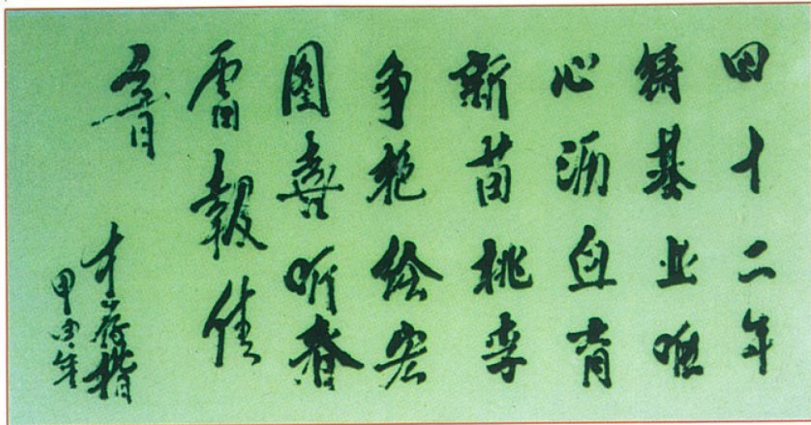 四十二年
铸基业呕
心沥血育
新苗桃李
争艳绘宏
图喜听春
雷報佳
音
甲申年